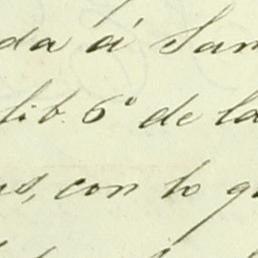 da á San
lib. 6º de la
s, con lo q